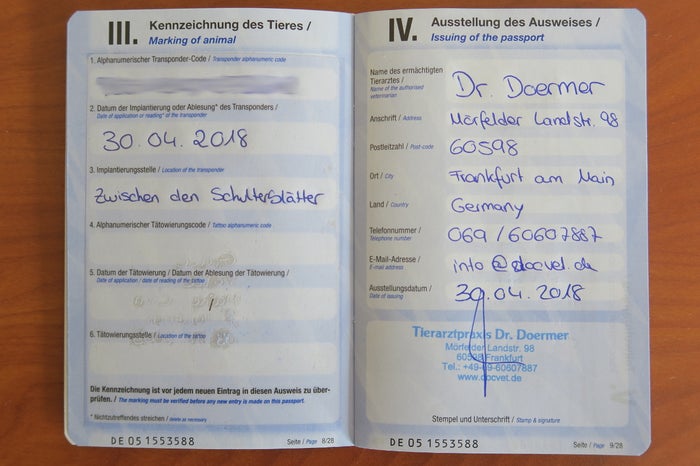 III. Kennzeichnung des Tieres /
Marking of animal
1. Alphanumerischer Transponder-Code / Transponder alphanumeric code
2. Datum der Implantierung oder Ablesung* des Transponders /
Date of application or reading* of the transponder
30.04.2018
3. Implantierungsstelle / Location of the transponder
Zwischen den Schulterblätter
4. Alphanumerischer Tätowierungscode / Tattoo alphanumeric code
5. Datum der Tätowierung / Datum der Ablesung der Tätowierung /
Date of application / date of reading of the tattoo
6. Tätowierungsstelle / Location of the tattoo
Die Kennzeichnung ist vor jedem neuen Eintrag in diesen Ausweis zu über-
prüfen. / The marking must be verified before any new entry is made on this passport.
* Nichtzutreffendes streichen / delete as necessary
DE 05 1553588
Seite / Page 8/28
IV. Ausstellung des Ausweises /
Issuing of the passport
Name des ermächtigten
Tierarztes /
Name of the authorised
veterinarian
Dr. Doermer
Anschrift / Address
Mörfelder Landstr. 98
Postleitzahl / Post-code
60598
Ort / City
Frankfurt am Main
Land / Country
Germany
Telefonnummer /
Telephone number
069 / 60607887
E-Mail-Adresse /
E-mail address
info@docvet.de
Ausstellungsdatum /
Date of issuing
30.04.2018
Tierarztpraxis Dr. Doermer
Mörfelder Landstr. 98
60598 Frankfurt
Tel.: +49-69-60607887
www.docvet.de
Stempel und Unterschrift / Stamp & signature
DE 05 1553588
Seite / Page 9/28